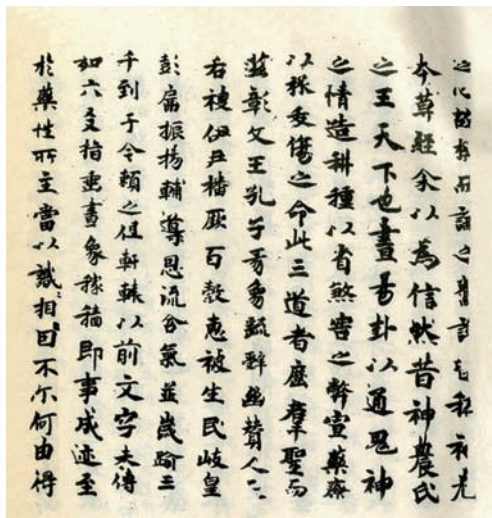 之心故撰而論之舊說皆稱神
本草經余以為信然昔神農氏
之王天下也畫易卦以通鬼神
之情造耕種以省煞害之弊宣藥療
以拯夭傷之命此三道者歷羣聖而
滋彰文王孔子彖象繇辭幽贊人
后稷伊尹播厥百穀惠被生民岐皇
彭扁振揚輔導恩流含氣並歲踰三
千到于今賴之但軒轅以前文字未傳
如六爻指垂畫象稼穡即事成迹至
於藥性所主當以識〻相因不尔何由得